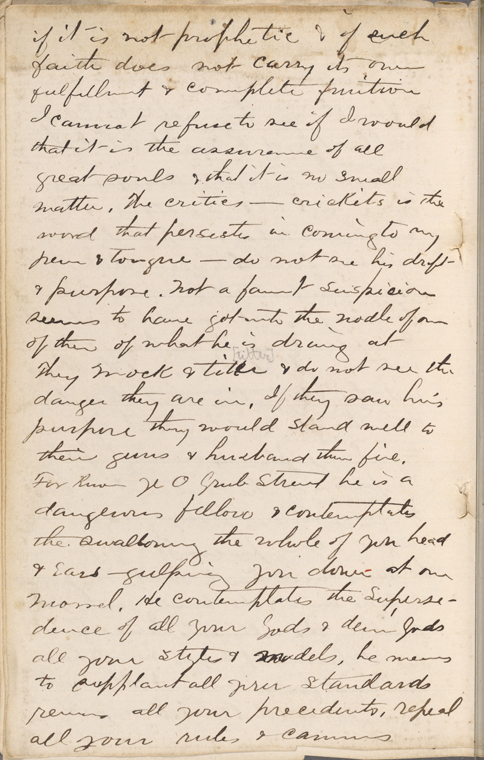 if it is not prophetic & if such
faith does not carry its own
fulfillment & complete fruition
I cannot refuse to see if I would
that it is the assurance of all
great souls & that it is no small
matter. The critics — crickets is the
word that persists in coming to my
pen & tongue — do not see his drift
& purpose. Not a faint suspicion
seems to have got into the nodle of one
of them of what he is driving at
[titter]
They mock & & do not see the
danger they are in. If they saw his
purpose they would stand well to
their guns & husband their fire.
For know ye O Grub Street he is a
dangerous fellow & contemplates
the swallowing the whole of you head
& Ears – gulping you down at one
morsel. He contemplates the Superse-
dence of all your Gods & demi Gods
all your styles & models, he means
to supplant all your standards
all your precedents, repeal
all your rules & canons